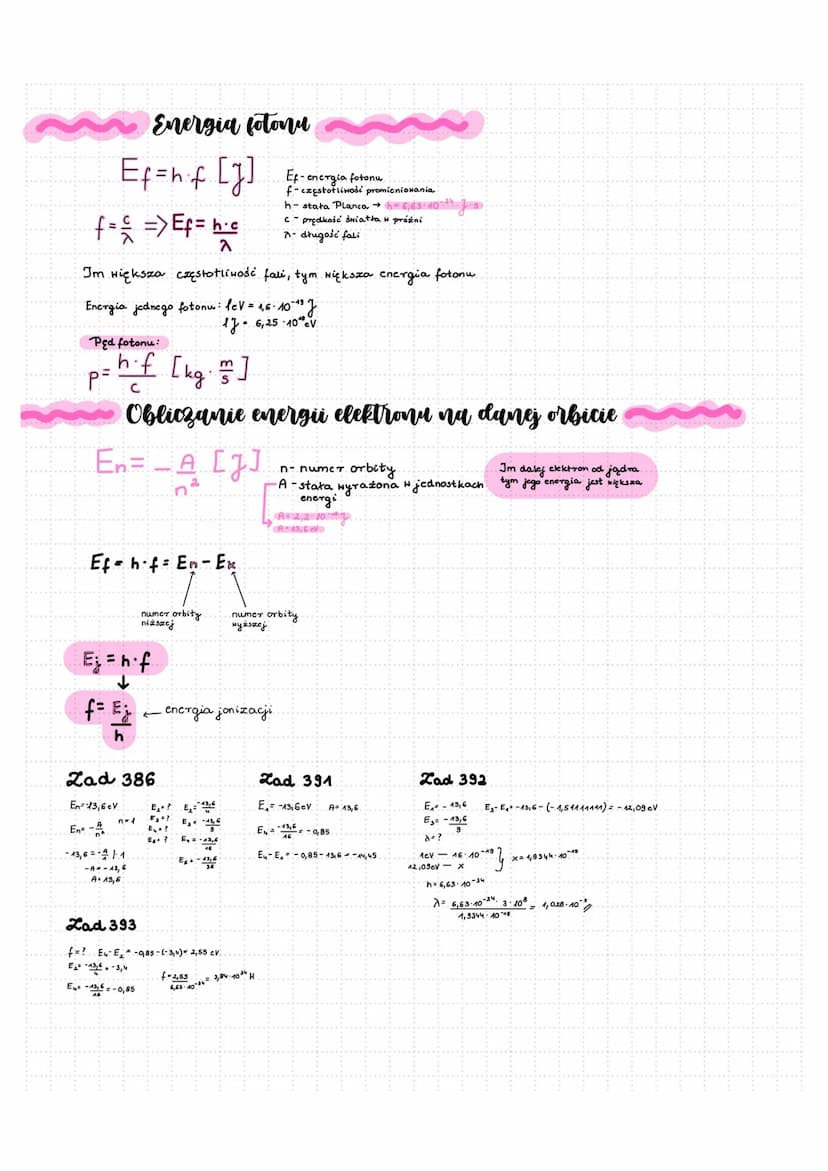 Energia fotonu
Ef=h·f [J]
Ef- energia fotonu
f- częstotliwość promieniowania
h- stała Planca → h=6,63·10⁻³⁴ J·s
c - prędkość światła w próżni
λ- długość fali
f=c/λ => Ef= h·c/λ
Im większa częstotliwość fali, tym większa energia fotonu
Energia jednego fotonu: 1eV = 1,6·10⁻¹⁹ J
1J = 6,25·10¹⁸ eV
Pęd fotonu:
p= h·f/c [kg·m/s]
Obliczanie energii elektronu na danej orbicie
En= -A/n² [J]
n- numer orbity
A - stała wyrażona w jednostkach
energi
A= 2,2·10⁻¹⁸ J
A=13,6 eV
Im dalej elektron od jądra
tym jego energia jest większa
Ef = h·f = En - Ek
numer orbity
niższej
numer orbity
wyższej
Ej = h·f
↓
f= Ej/h ← energia jonizacji
Zad 386
En=-13,6eV
En= -A/n² n=1
-13,6 = -A/1 |·1
-A = -13,6
A= 13,6
E₂=? E₂= -13,6/4
E₃=? E₃= -13,6/9
E₄=? E₄= -13,6/16
E₆=? E₆= -13,6/36
Zad 391
E₁= -13,6eV A= 13,6
E₄= -13,6/16 = -0,85
E₄-E₁= -0,85-13,6 = -14,45
Zad 392
E₁= -13,6 E₃-E₁= -13,6-(-1,51111111) = -12,09eV
E₃= -13,6/9
λ=?
1eV — 16·10⁻¹⁹
12,09eV — x } x= 1,9344·10⁻¹⁸
h= 6,63·10⁻³⁴
λ= 6,63·10⁻³⁴·3·10⁸/1,9344·10⁻¹⁸ = 1,028·10⁻⁷
Zad 393
f=? E₄-E₂= -0,85-(-3,4)= 2,55 eV
E₂= -13,6/4 = -3,4
E₄= -13,6/16 = -0,85
f= 2,55/6,63·10⁻³⁴ = 3,84·10³⁴ H